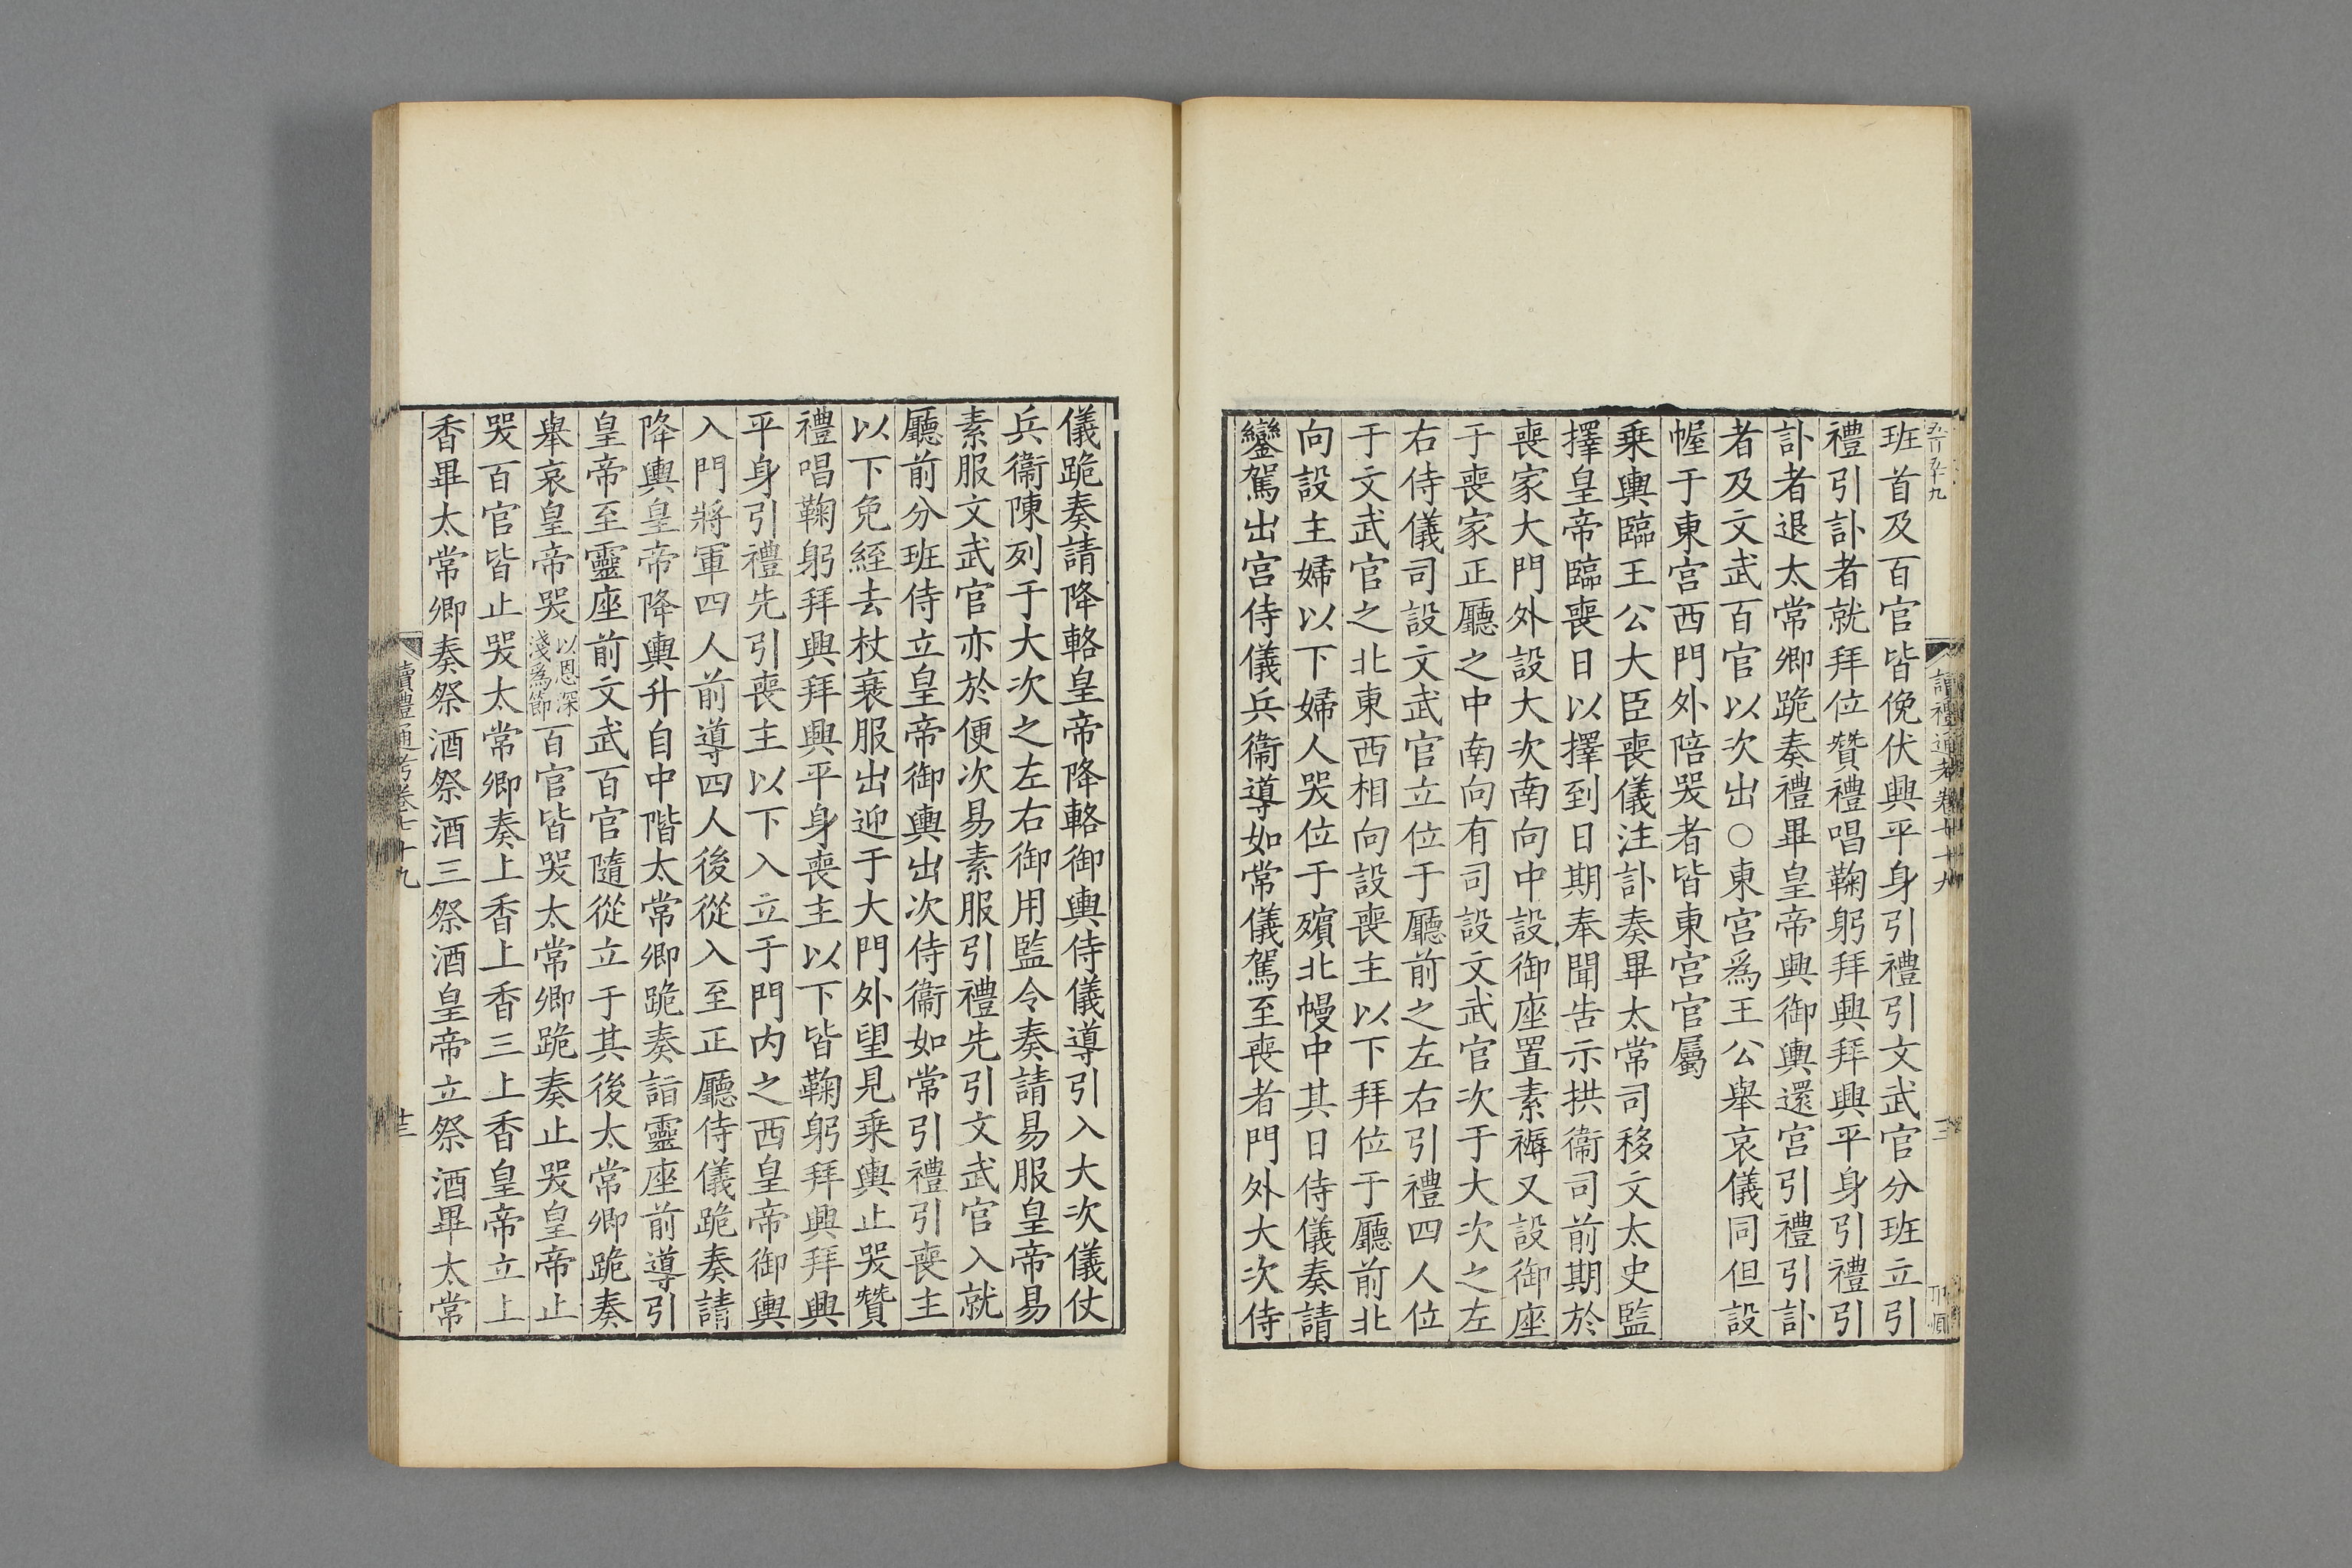 班首及百官皆俛伏興平身引禮引文武官分班立引
禮引訃者就拜位贊禮唱鞠躬拜興拜興平身引禮引
訃者退太常卿跪奏禮畢皇帝興御輿還宮引禮引訃
者及文武百官以次出○東宮爲王公舉哀儀同但設
幄于東宮西門外陪哭者皆東宮官屬
乘輿臨王公大臣喪儀注訃奏畢太常司移文太史監
擇皇帝臨喪日以擇到日期奉聞告示拱衞司前期於
喪家大門外設大次南向中設御座置素褥又設御座
于喪家正廳之中南向有司設文武官次于大次之左
右侍儀司設文武官立位于廳前之左右引禮四人位
于文武官之北東西相向設喪主以下拜位于廳前北
向設主婦以下婦人哭位于殯北幔中其日侍儀奏請
鑾駕出宮侍儀兵衞導如常儀駕至喪者門外大次侍
儀跪奏請降輅皇帝降輅御輿侍儀導引入大次儀仗
兵衞陳列于大次之左右御用監令奏請易服皇帝易
素服文武官亦於便次易素服引禮先引文武官入就
廳前分班侍立皇帝御輿出次侍衞如常引禮引喪主
以下免絰去杖衰服出迎于大門外望見乘輿止哭贊
禮唱鞠躬拜興拜興平身喪主以下皆鞠躬拜興拜興
平身引禮先引喪主以下入立于門內之西皇帝御輿
入門將軍四人前導四人後從入至正廳侍儀跪奏請
降輿皇帝降輿升自中階太常卿跪奏詣靈座前導引
皇帝至靈座前文武百官隨從立于其後太常卿跪奏
舉哀皇帝哭以恩深淺爲節百官皆哭太常卿跪奏止哭皇帝止
哭百官皆止哭太常卿奏上香上香三上香皇帝立上
香畢太常卿奏祭酒祭酒三祭酒皇帝立祭酒畢太常
讀禮通考卷七十九